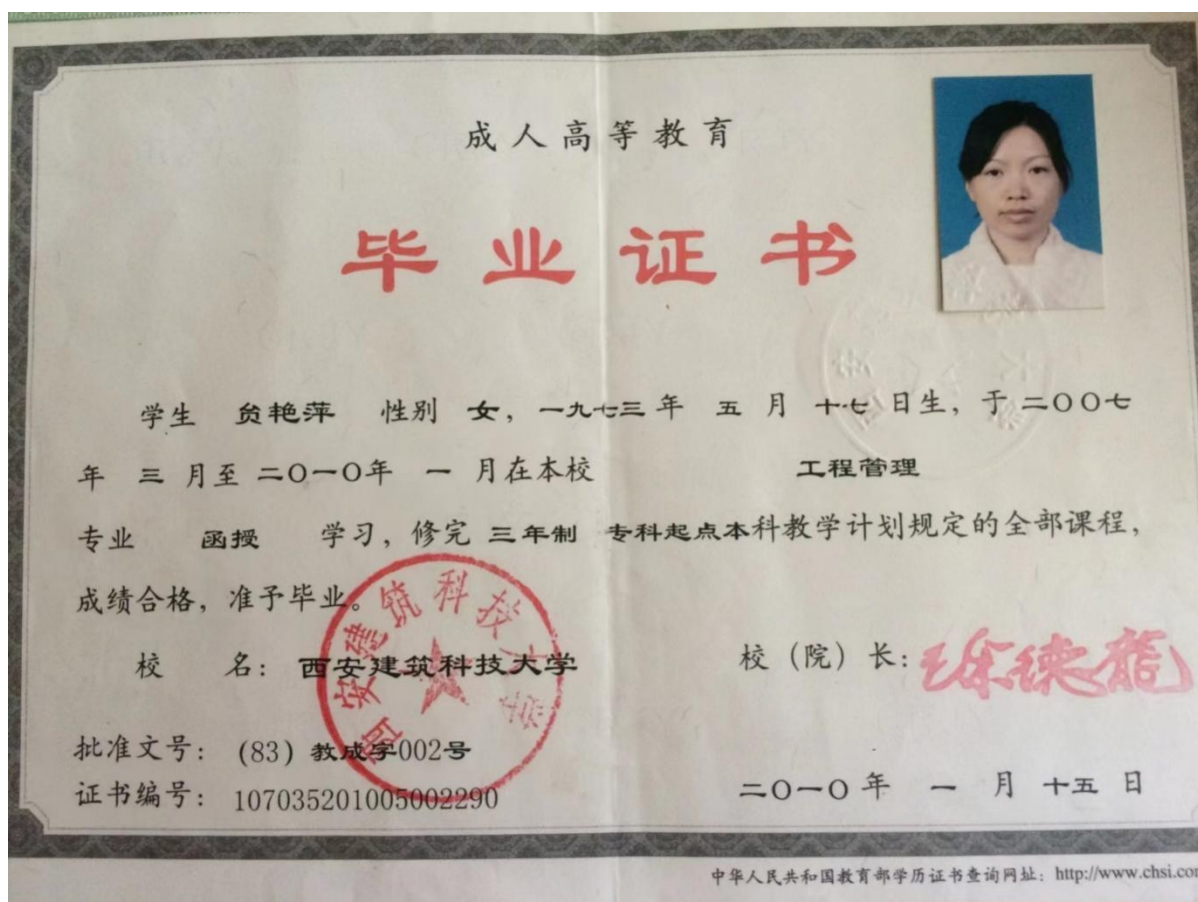 成人高等教育
毕业证书
学生 贠艳萍 性别 女，一九七三年 五 月 十七 日生，于二〇〇七
年 三 月至 二〇一〇年 一 月在本校 工程管理
专业 函授 学习，修完 三年制 专科起点本科教学计划规定的全部课程，
成绩合格，准予毕业。
校 名：西安建筑科技大学
校（院）长：徐德龙
西安建筑科技大学
批准文号：(83) 教成字002号
证书编号：107035201005002290
二〇一〇年 一 月 十五 日
中华人民共和国教育部学历证书查询网址：http://www.chsi.com